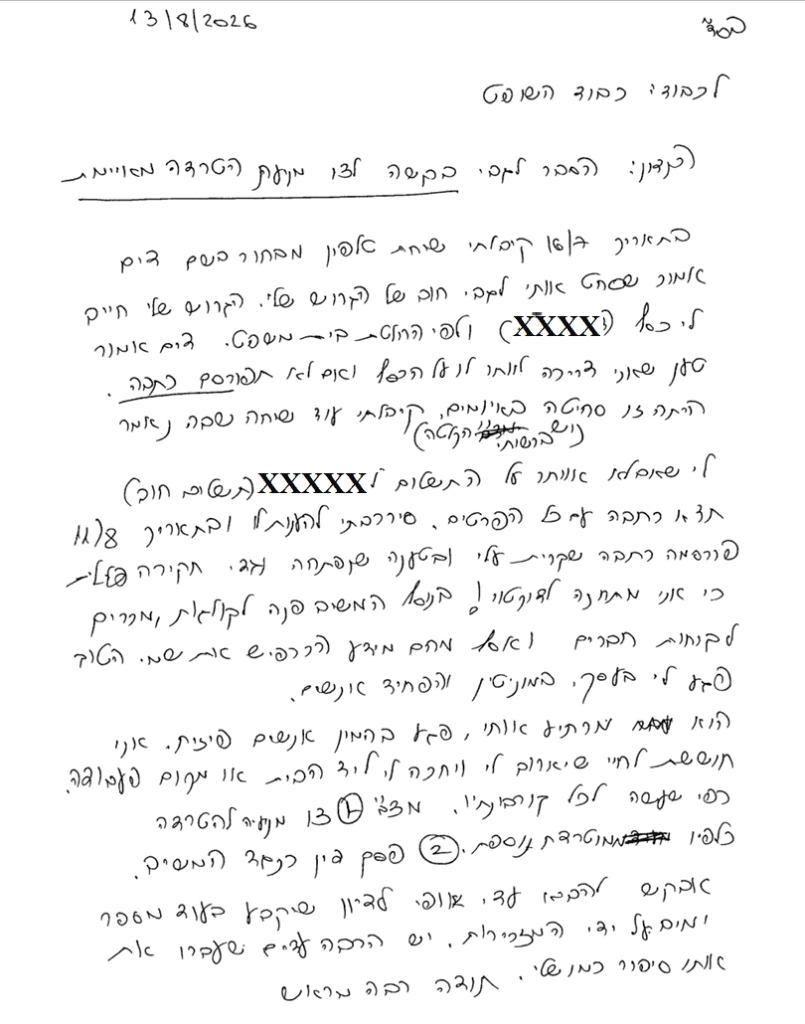 13/8/2026
בס"ד
לכבוד: כבוד השופט
הנדון: הסבר לגבי בקשה לצו מניעת הטרדה מאויימת
בתאריך 16/7 קיבלתי שיחת אלפון מבחור בשם דים
אמור שסחט אותי לגבי חוב של הגרוש שלי. הגרוש שלי חייב
לי כסף (XXXX) ולפי החלטת בית משפט. דים אמור
טען שאני צריכה לוותר לו על הכסף ואם לא תפורסם כתבה.
היתה זו סחיטה באיומים, קיבלתי עוד שיחה שבה נאמר
(ויש ברשותי הקלטה)
לי שאם לא אוותר על התשלום ל XXXXX (תשלום חוב)
תצא כתבה עם כל הפרטים. סירבתי להענות לו ובתאריך 11/8
פורסמה כתבה שקרית עלי ובטענה שנפתחה נגדי חקירה פלילית
כי אני מתחנה לדוקטור! בנוסף המשיב פנה לקולגות, מכרים
לקוחות חברים ואסף מהם מידע הכפיש את שמי הטוב
פגע לי בעסק, במוניטין והפחיד אנשים.
הוא מרתיע אותי, פגע בהמון אנשים פיזית. אני
חוששת לחיי שיארוב לי ויחכה לי ליד הבית או מקום העבודה.
כפי שעשה לכל קורבנותיו. מצב" 1 צו מניעה להטרדה
כלפיו מוטרדת נוספת. 2 פסק דין כנגד המשיב.
אבקש להביא עדי אופי לדיון שיקבע בעוד מספר
ימים על ידי המזכירות. יש הרבה עדים שעברו את
אותו סיפור כמו שלי. תודה רבה מראש